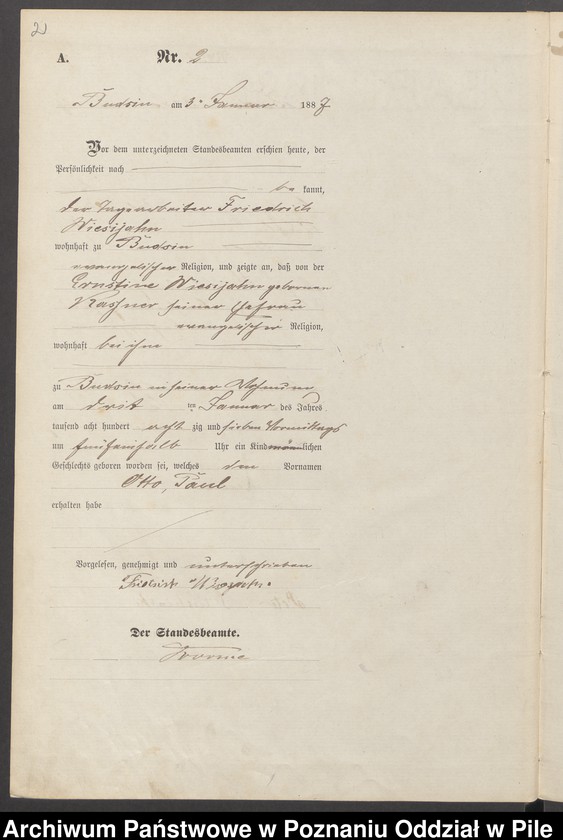 2
A. Nr. 2
Budsin am 3. Januar 1887
Vor dem unterzeichneten Standesbeamten erschien heute, der
Persönlichkeit nach
be kannt,
der Tagearbeiter Friedrich
Wiesijahn
wohnhaft zu Budsin
evangelischer Religion, und zeigte an, daß von der
Ernstine Wiesijahn gebornen
seiner Ehefrau
evangelischer Religion,
wohnhaft bei ihm
zu Budsin in seiner Wohnung
am drit ten Januar des Jahres
tausend acht hundert acht zig und sieben Vormittags
um fünfeinhalb Uhr ein Kind männlichen
Geschlechts geboren worden sei, welches den Vornamen
Otto, Paul
erhalten habe
Vorgelesen, genehmigt und unterschrieben
Friedrich
Der Standesbeamte.
Archiwum Państwowe w Poznaniu Oddział w Pile